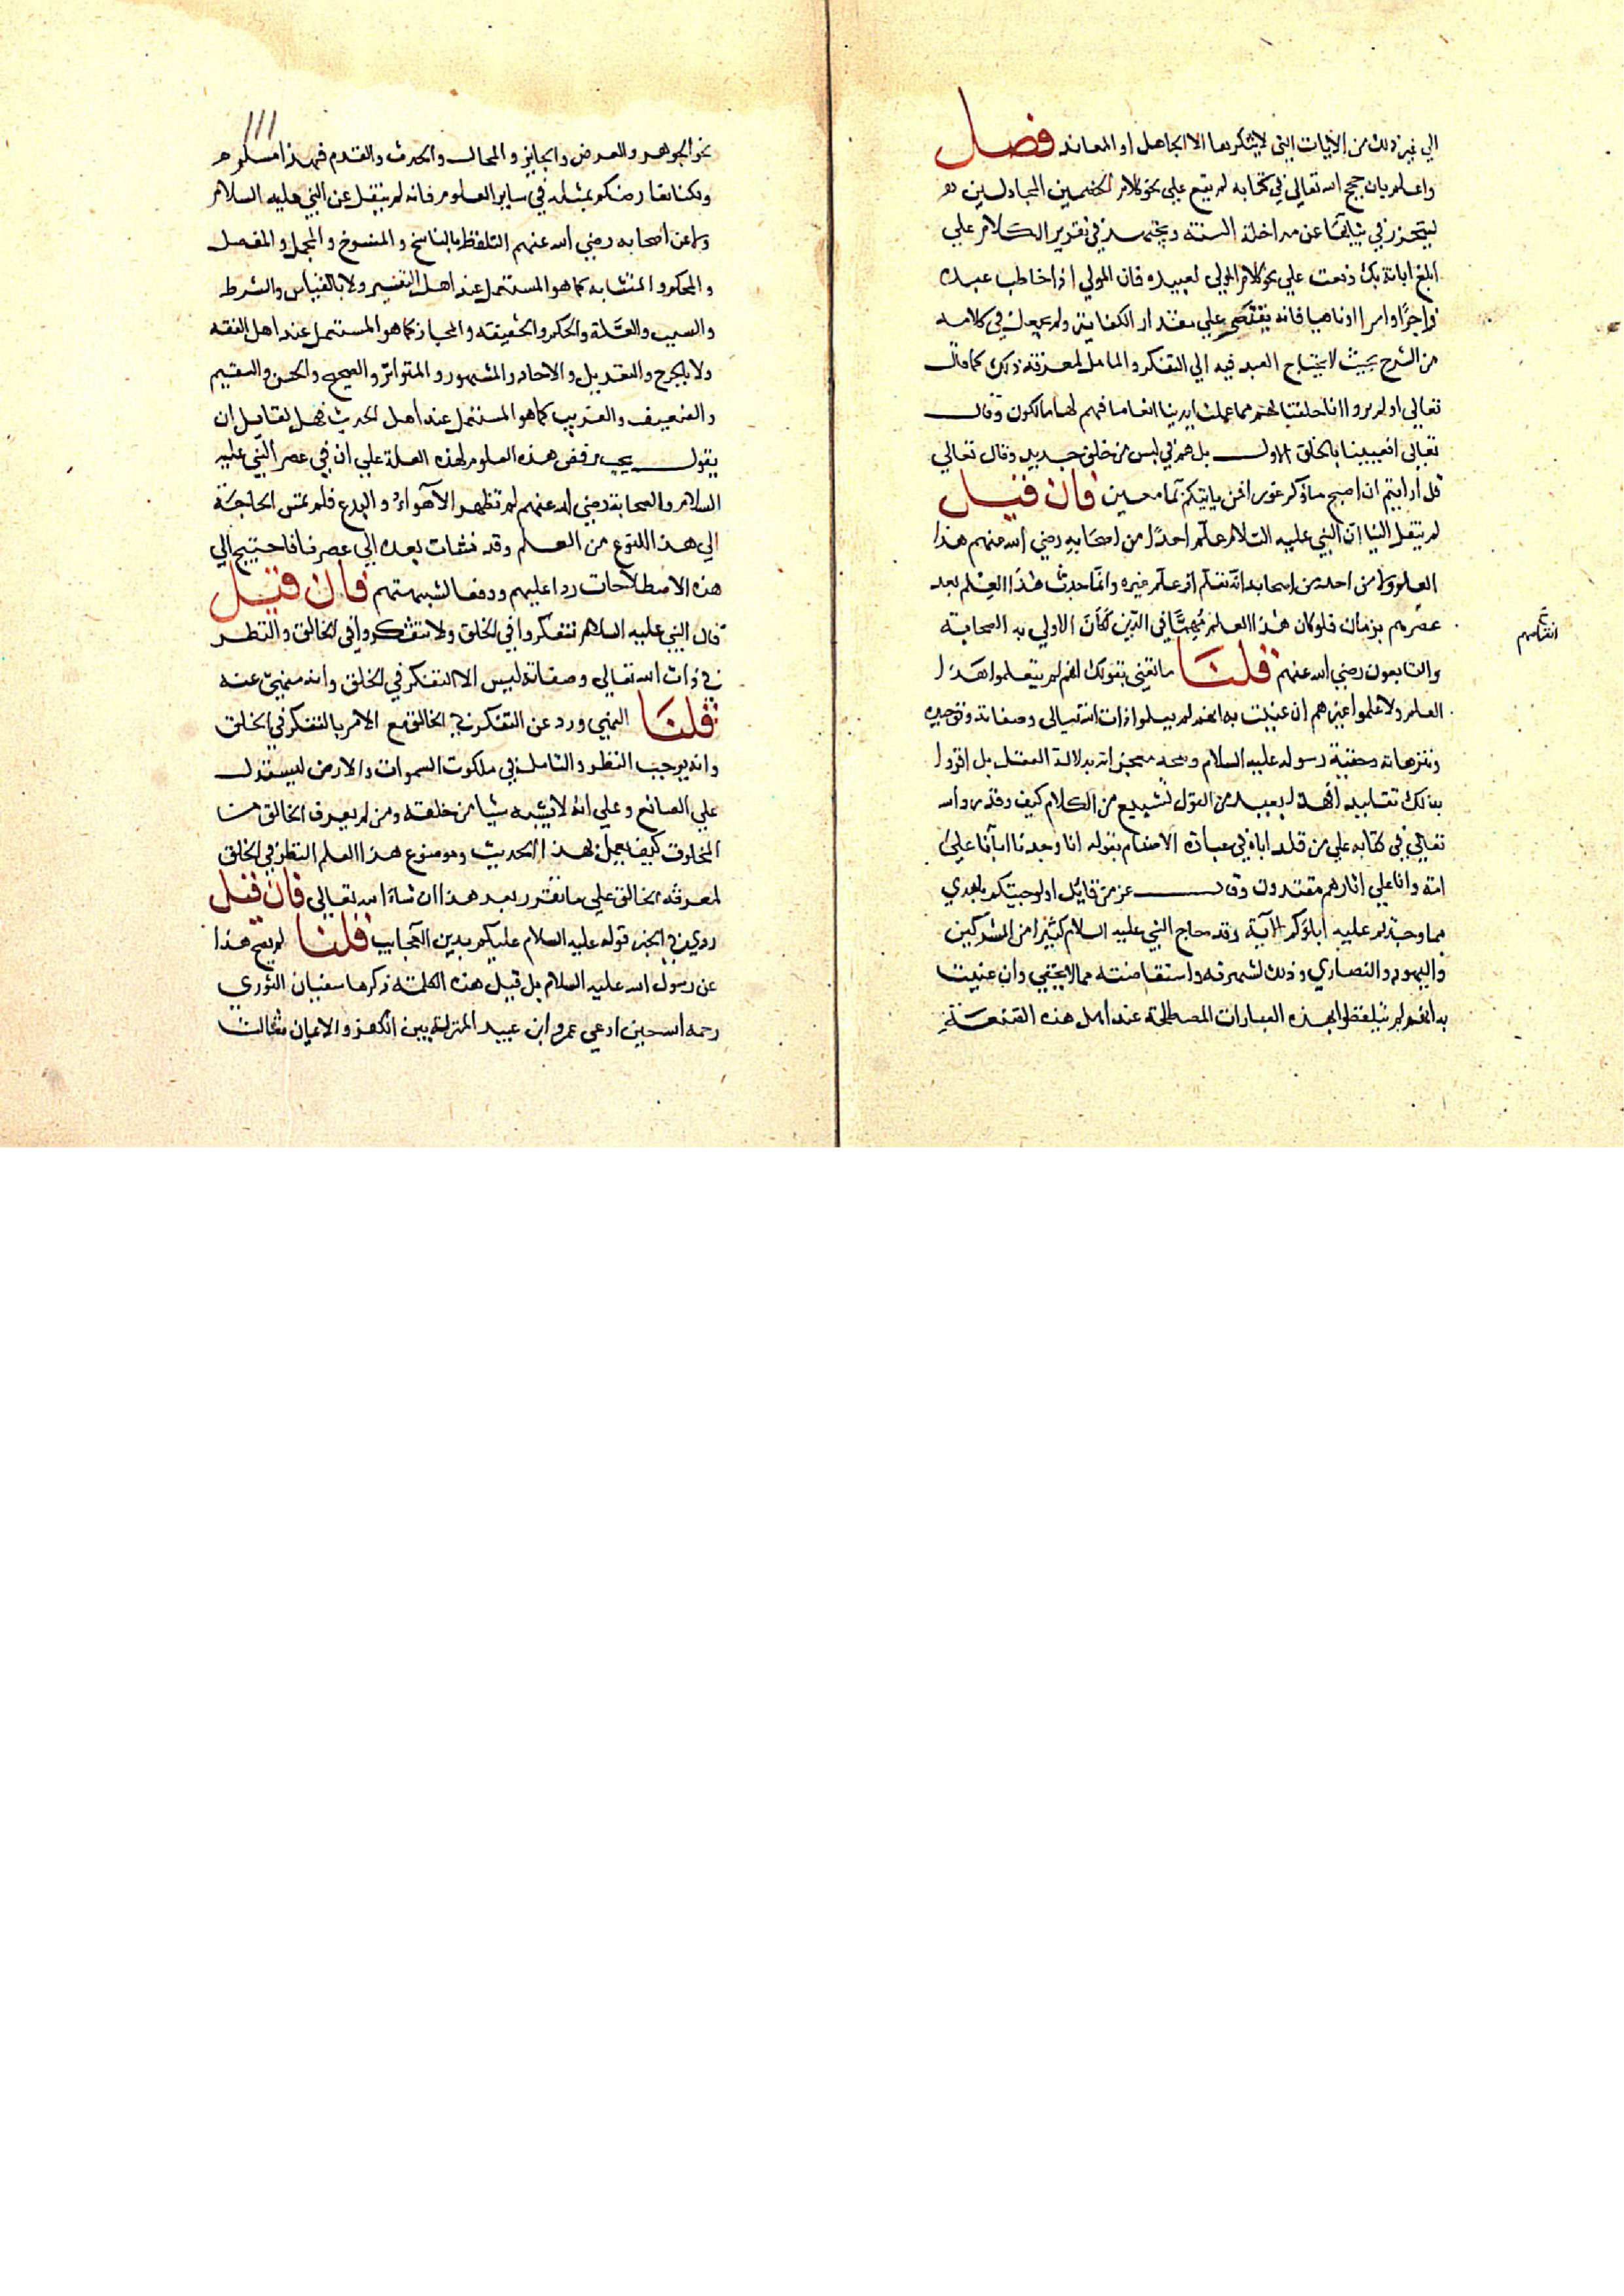 الي غير ذلك من الايات التي لا ينكرها الا الجاهل او المعاند فصل
واعلم بان حجج الله تعالي في كتابه لم يقع علي نحو كلام الخصمين المجادلين
ليتحرز في عن مداخلة السنة ويجتهد في تقرير الكلام علي
ابلغ ابانة بل وقعت علي نحو كلام المولي لعبيده فان المولي اذا خاطب عبده
زاجرًا او امرا او ناهيا فانه يقتصر علي مقدار الكفاية ولم يجعل في كلامه
من الشرح بحيث لا يحتاج العبد فيه الي التفكر والتامل لمعرفة ذلك كما قال
تعالي اولم يروا انا خلقنا لهم مما عملت ايدينا انعاما فهم لها مالكون وقال
تعالي افعيينا بالخلق الاول بل هم في لبس من خلق جديد وقال تعالي
قل ارايتم ان اصبح ماؤكم غورا فمن ياتيكم بما معين فان قيل
لم ينقل الينا ان النبي عليه السلام علم احدًا من اصحابه رضي الله عنهم هذا
العلم ولا من احد من اصحابه انه تعلم او علم غيره وانما حدث هذا العلم بعد
عصرهم بزمان فلو كان هذا العلم مُهِمًّا في الدين لكان الاولي به الصحابة
والتابعون رضي الله عنهم قلنا ما تعني بقولك انهم لم يتعلموا هذا
العلم ولا علموا غيرهم ان عنيت به انهم لم يعلموا ذات الله تعالي وصفاته وتوحيده
وتنزهاته وحقية رسوله عليه السلام وصحة معجزاته بدلالة العقل بل اقروا
بذلك تقليدا فهذا بعيد من القول شنيع من الكلام كيف وقد رد الله
تعالي في كتابه علي من قلد اباه في عبادة الاصنام بقوله انا وجدنا اباءنا علي
امة وانا علي اثارهم مقتدون وقال عز من قايل اولو جيتكم باهدي
مما وجدتم عليه اباؤكم الاية وقد حاج النبي عليه السلام كثيرا من المشركين
واليهود والنصاري وذلك لشهرته واستفاضته مما لا يخفي وان عنيت
به انهم لم يتلفظوا بهذه العبارات المصطلحة عند اهل هذه الصنعة
نحو الجوهر والعرض والجايز والمحال والحدث والقدم فهذا مسلم
ولكنا نعارضكم بمثله في ساير العلوم فانه لم ينقل عن النبي عليه السلام
ولا عن اصحابه رضي الله عنهم التلفظ بالناسخ والمنسوخ والمجمل والمفصل
والمحكم والمتشابه كما هو المستعمل عند اهل التفسير ولا بالقياس والشرط
والسبب والعلة والحكم والحقيقه والمجاز كما هو المستعمل عند اهل الفقه
ولا بالجرح والتعديل والاحاد والمشهور والمتواتر والصحيح والحسن والسقيم
والضعيف والغريب كما هو المستعمل عند اهل الحديث فهل لقايل ان
يقول يجب رفض هذه العلوم لهذه العلة علي ان في عصر النبي عليه
السلام والصحابة رضي الله عنهم لم تظهر الاهواء والبدع فلم تمس الحاجة
الي هذا النوع من العلم وقد نشات بعده الي عصرنا فاحتيج الي
هذه الاصطلاحات ردا عليهم ودفعا لشبهتهم فان قيل
قال النبي عليه السلام تفكروا في الخلق ولا تتفكروا في الخالق والنظر
في ذات الله تعالي وصفاته ليس الا التفكر في الخلق وانه منهي عنه
قلنا النهي ورد عن التفكر في الخالق مع الامر بالتفكر في الخلق
وانه يوجب النظر والتامل في ملكوت السموات والارض ليستدل
علي الصانع وعلي انه لا يشبه شيا من خلقه ومن لم يعرف الخالق من
المخلوق كيف يعمل بهذا الحديث وموضوع هذا العلم النظر في الخلق
لمعرفة الخالق علي ما نقرر بعد هذا ان شاء الله تعالي فان قيل
روي في الخبر قوله عليه السلام عليكم بدين العجايز قلنا لم يصح هذا
عن رسول الله عليه السلام بل قيل هذه الكلمة ذكرها سفيان الثوري
رحمه الله حين ادعي عمرو ابن عبيد المنزلة بين الكفر والايمان فقالت